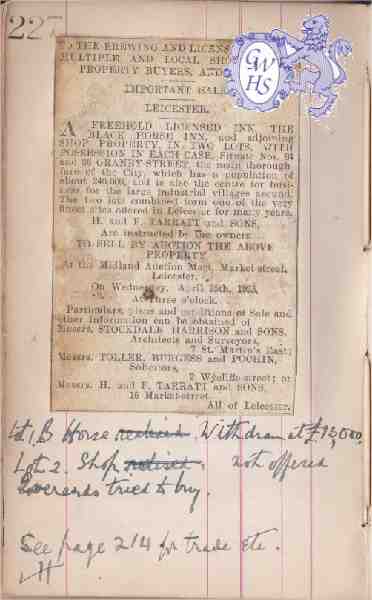 227
TO THE BREWING AND LICENS
MULTIPLE AND LOCAL SHO
PROPERTY BUYERS, AND
IMPORTANT SALE
LEICESTER.
A FREEHOLD LICENSED INN THE
BLACK HORSE INN, and adjoining
SHOP PROPERTY, IN TWO LOTS, WITH
POSSESSION IN EACH CASE, Situate Nos. 94
and 96 GRANBY-STREET, the main thorough-
fare of the City, which has a population of
about 240,000, and is also the centre for busi-
ness for the large industrial villages around.
The two lots combined form one of the very
finest sites offered in Leicester for many years.
H. and F. TARRATT and SONS,
Are instructed by the owners
TO SELL BY AUCTION THE ABOVE
PROPERTY
At the Midland Auction Mart, Market street,
Leicester,
On Wednesday, April 25th, 1923,
At three o'clock.
Particulars, plans and conditions of Sale and
other information can be obtained of
Messrs. STOCKDALE HARRISON and SONS,
Architects and Surveyors,
7 St. Martin's East;
Messrs. TOLLER, BURGESS and POCHIN,
Solicitors,
2 Wycliffe-street; or
Messrs. H. and F. TARRATT and SONS,
16 Market-street.
All of Leicester.
GWHS
Lot 1, B Horse Withdrawn at
Lot 2. Shop not offered
Everards tried to buy.
See page 214 for trade etc.